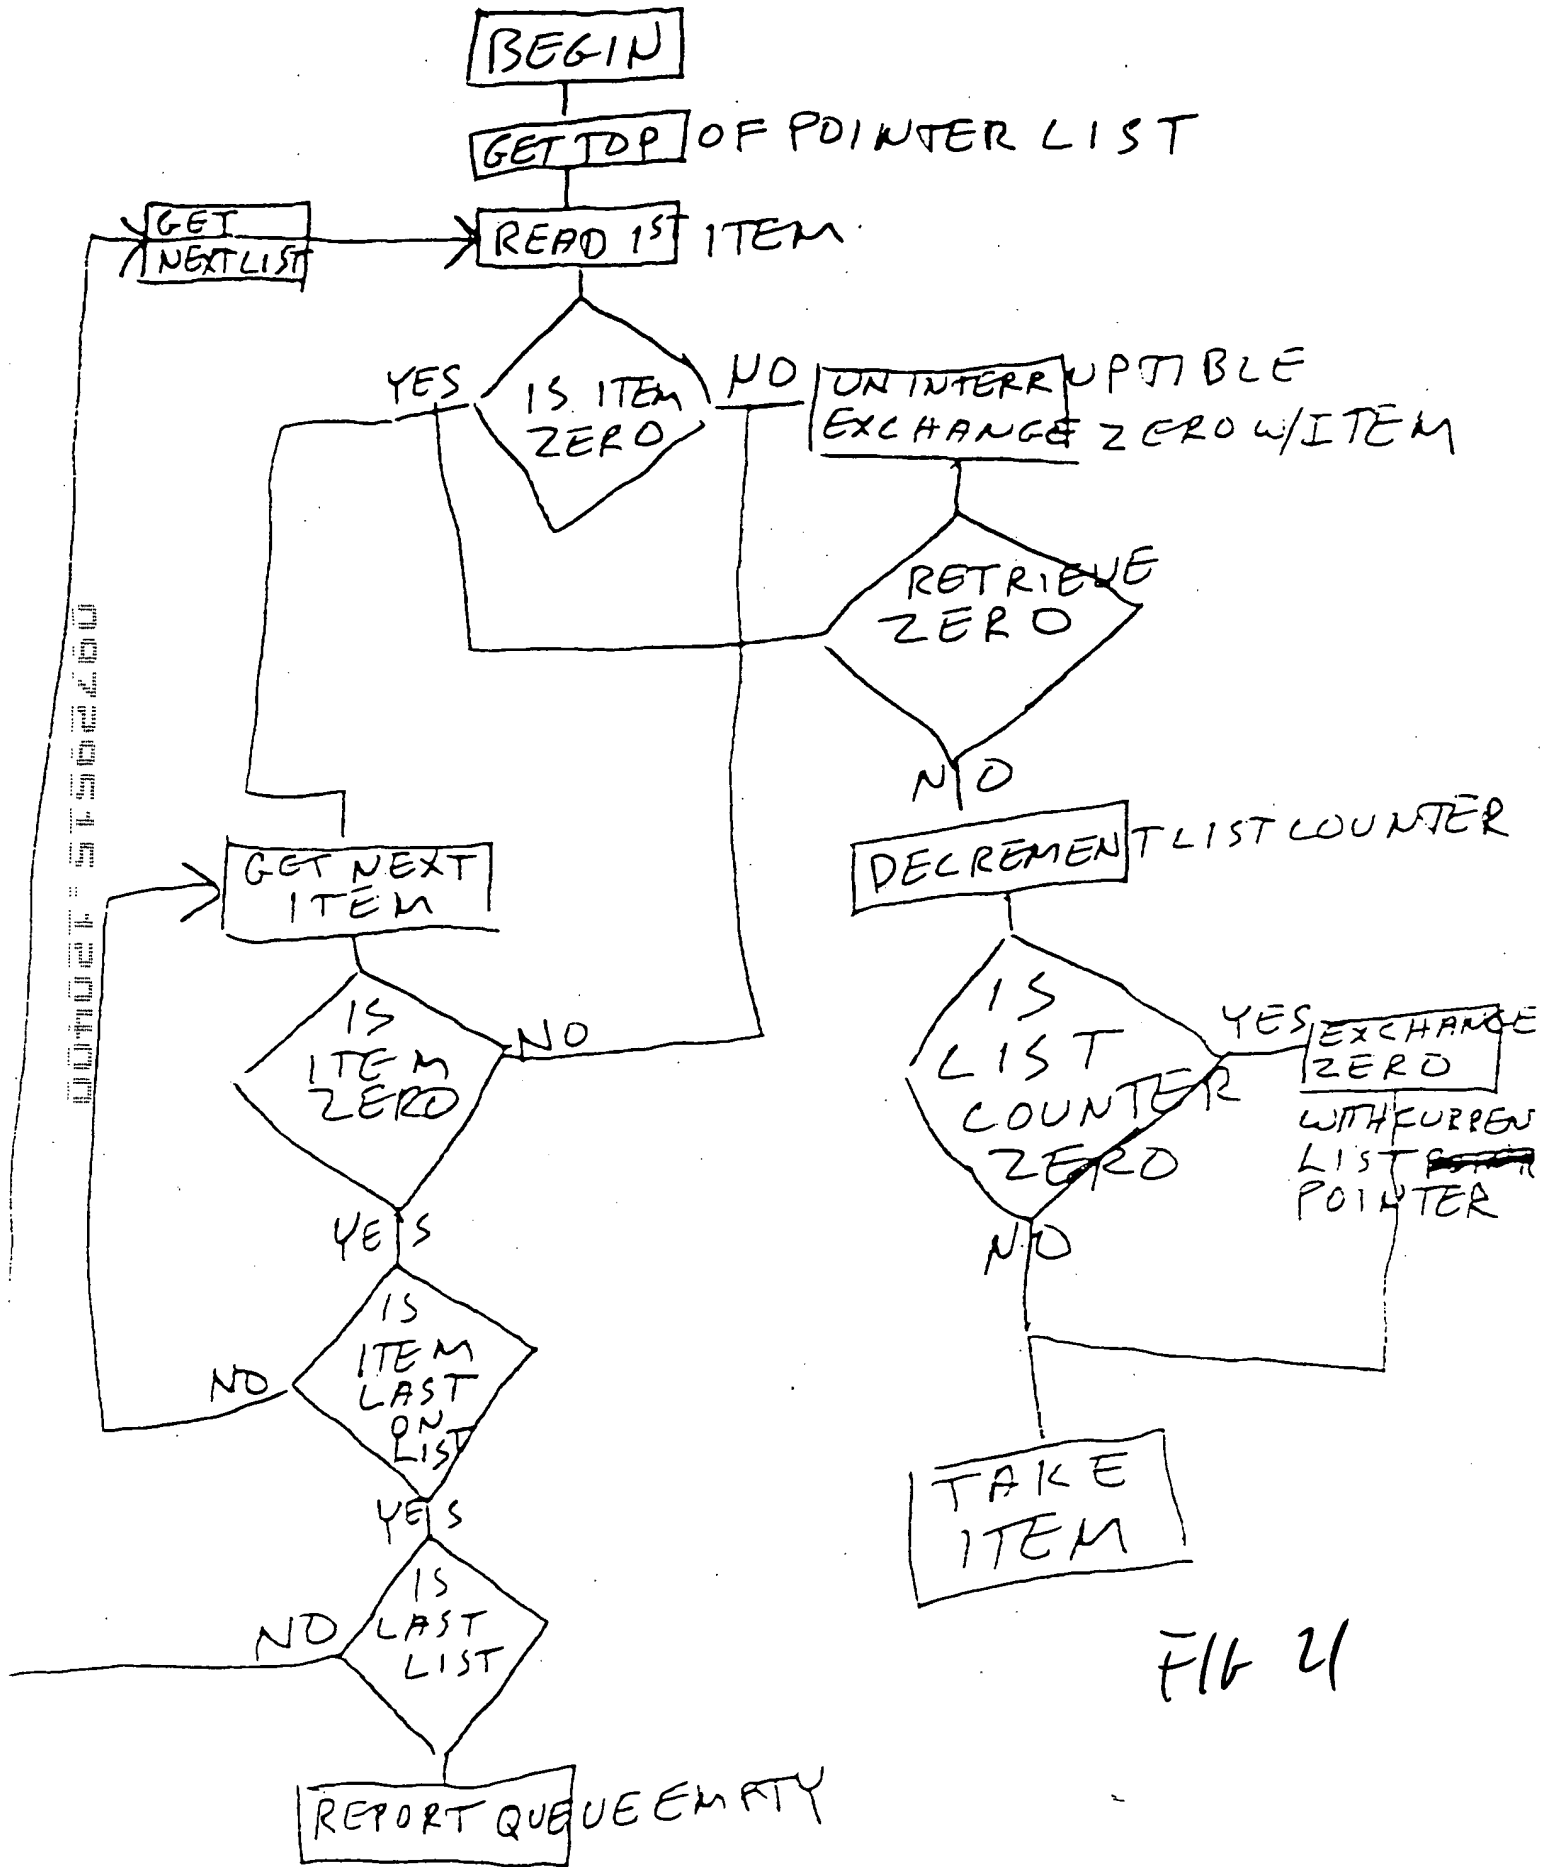 BEGIN
GET TOP OF POINTER LIST
GET
NEXT LIST
READ 1ST ITEM
YES
IS ITEM
ZERO
NO
UNINTERRUPTIBLE
EXCHANGE ZERO W/ITEM
RETRIEVE
ZERO
NO
DECREMENT LIST COUNTER
GET NEXT
ITEM
IS
ITEM
ZERO
NO
IS
LIST
COUNTER
ZERO
YES
EXCHANGE
ZERO
WITH CURREN
LIST
POINTER
YES
NO
IS
ITEM
LAST
ON
LIST
NO
YES
TAKE
ITEM
IS
LAST
LIST
NO
REPORT QUEUE EMPTY
FIG 21
09729515.120400